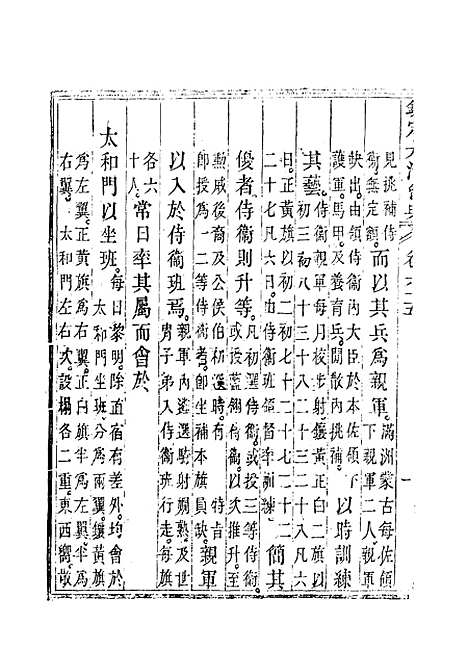 欽定大清會典 卷六十五 一
見挑補侍
衛無定額 而以其兵爲親軍 滿洲蒙古每佐領
下親軍二人親軍
缺出由領侍衛內大臣於本佐領下
護軍馬甲及養育兵閒散內挑補 以時訓練
其藝 侍衛親軍每月校步射鑲黃正白二旗以
初三初八十三十八二十三二十八凡六
日正黃旗以初二初七十二十七二十二
二十七凡六日由侍衛班領督率訓練 簡其
優者侍衛則升等 凡初選侍衛或投三等侍衛
或投藍翎侍衛以次推升至
勳戚後裔及公侯伯初選時有 特旨
即授爲一二等侍衛者即坐補本旗員缺 親軍
以入於侍衛班焉 親軍內遴選騎射嫺熟及世
冑子弟入侍衛班行走每旗
各六
十人 常日率其屬而會於
太和門以坐班 每日黎明除直宿有差外均會於
太和門坐班分爲兩翼鑲黃旗
爲左翼正黃旗爲右翼正白旗半爲左翼半爲
右翼 太和門左右次設榻各二重東西嚮散